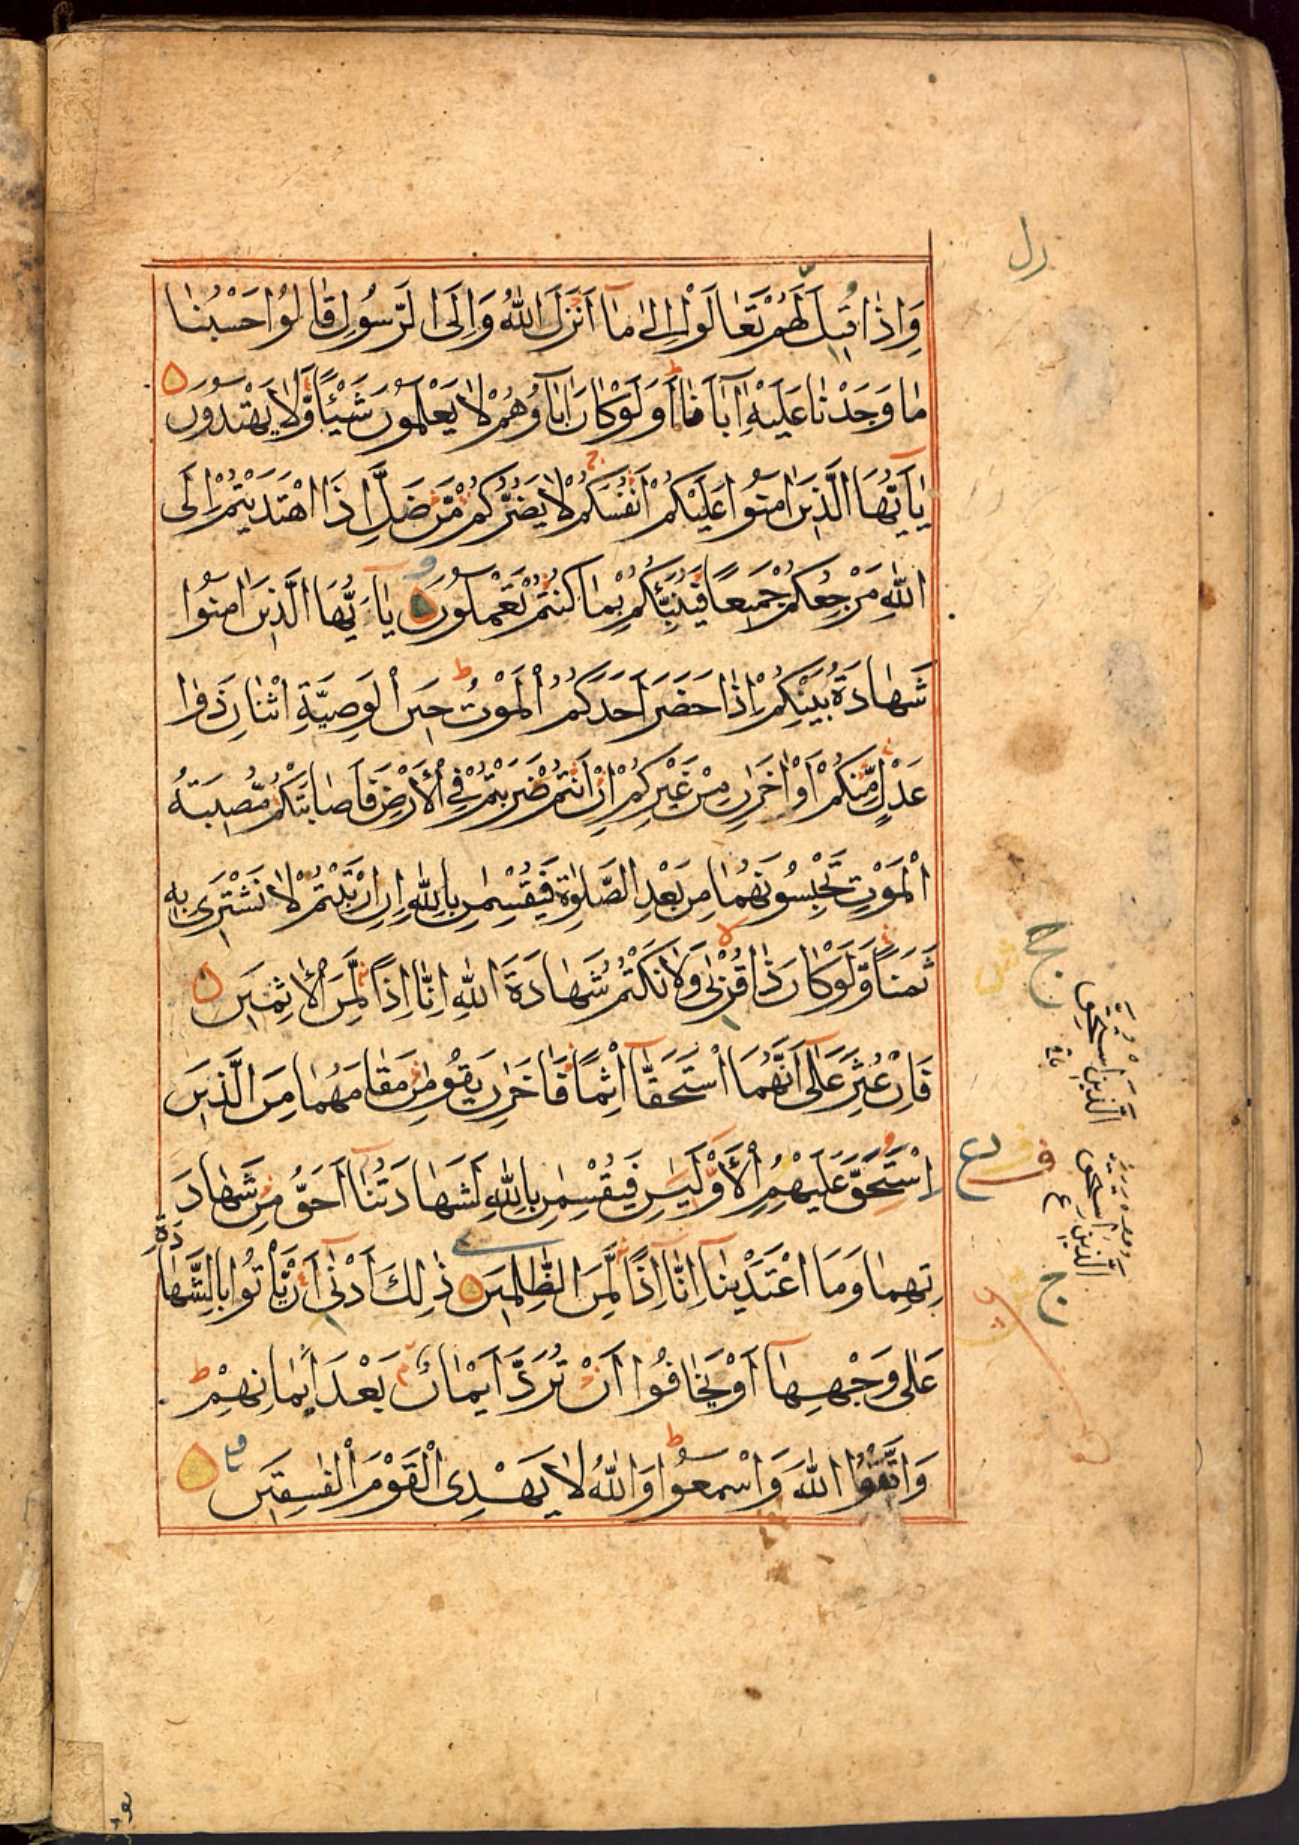 وَاِذَا قِيلَ لَهُمْ تَعَالَوْا اِلٰى مَآ اَنْزَلَ اللّٰهُ وَاِلَى الرَّسُولِ قَالُوا حَسْبُنَا
مَا وَجَدْنَا عَلَيْهِ اٰبَآءَنَا اَوَلَوْ كَانَ اٰبَآؤُهُمْ لَا يَعْلَمُونَ شَيْئًا وَّلَا يَهْتَدُونَ
يٰآ اَيُّهَا الَّذِينَ اٰمَنُوا عَلَيْكُمْ اَنْفُسَكُمْ لَا يَضُرُّكُمْ مَّنْ ضَلَّ اِذَا اهْتَدَيْتُمْ اِلَى
اللّٰهِ مَرْجِعُكُمْ جَمِيعًا فَيُنَبِّئُكُمْ بِمَا كُنْتُمْ تَعْمَلُونَ يٰآ اَيُّهَا الَّذِينَ اٰمَنُوا
شَهَادَةُ بَيْنِكُمْ اِذَا حَضَرَ اَحَدَكُمُ الْمَوْتُ حِينَ الْوَصِيَّةِ اثْنَانِ ذَوَا
عَدْلٍ مِّنْكُمْ اَوْ اٰخَرَانِ مِنْ غَيْرِكُمْ اِنْ اَنْتُمْ ضَرَبْتُمْ فِي الْاَرْضِ فَاَصَابَتْكُمْ مُّصِيبَةُ
الْمَوْتِ تَحْبِسُونَهُمَا مِنْ بَعْدِ الصَّلٰوةِ فَيُقْسِمٰنِ بِاللّٰهِ اِنِ ارْتَبْتُمْ لَا نَشْتَرِي بِهِ
ثَمَنًا وَّلَوْ كَانَ ذَا قُرْبٰى وَلَا نَكْتُمُ شَهَادَةَ اللّٰهِ اِنَّآ اِذًا لَّمِنَ الْاٰثِمِينَ
فَاِنْ عُثِرَ عَلٰى اَنَّهُمَا اسْتَحَقَّآ اِثْمًا فَاٰخَرَانِ يَقُومٰنِ مَقَامَهُمَا مِنَ الَّذِينَ
اسْتُحِقَّ عَلَيْهِمُ الْاَوْلَيَيْنِ فَيُقْسِمٰنِ بِاللّٰهِ لَشَهَادَتُنَآ اَحَقُّ مِنْ شَهَادَ
تِهِمَا وَمَا اعْتَدَيْنَآ اِنَّآ اِذًا لَّمِنَ الظّٰلِمِينَ ذٰلِكَ اَدْنٰى اَنْ يَّأْتُوا بِالشَّهَادَةِ
عَلٰى وَجْهِهَآ اَوْ يَخَافُوا اَنْ تُرَدَّ اَيْمَانٌ بَعْدَ اَيْمَانِهِمْ
وَاتَّقُوا اللّٰهَ وَاسْمَعُوا وَاللّٰهُ لَا يَهْدِى الْقَوْمَ الْفٰسِقِينَ